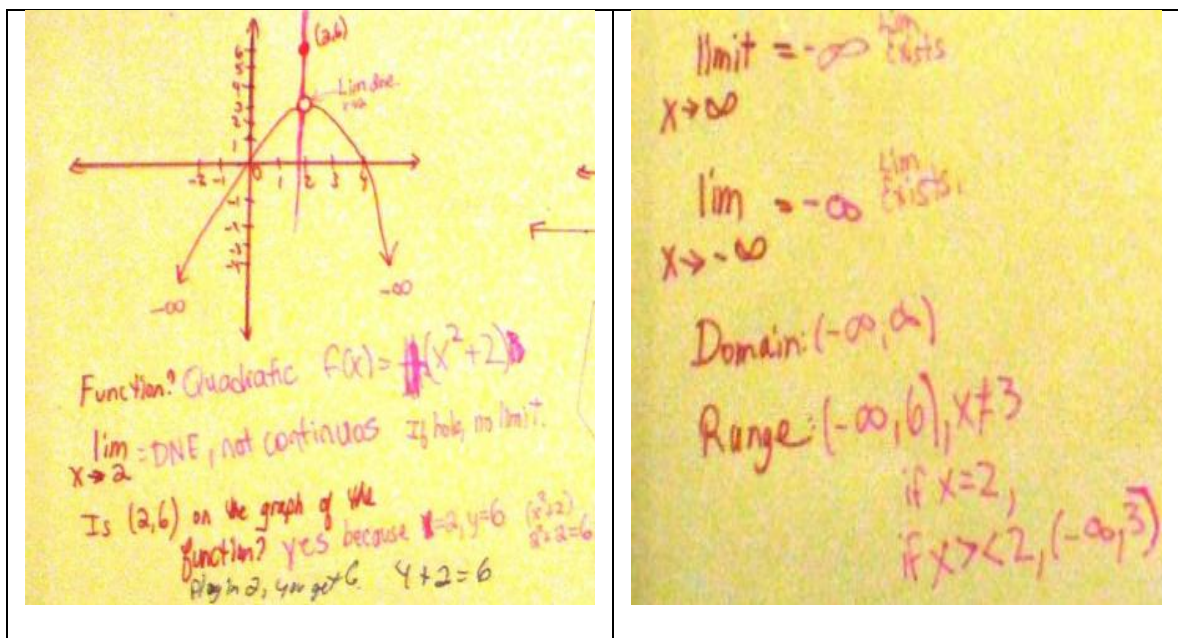 (2,6)
Lim dne.
-2 -1 0 1 2 3 4
-∞
-∞
Function? Quadratic f(x)= (x²+2)
lim = DNE, not continuos If hole, no limit.
x→2
Is (2,6) on the graph of the
function? yes because x=2, y=6 (x²+2)
2²+2=6
Plug in 2, you get 6. 4+2=6
limit = -∞ Lim Exists
x→∞
lim = -∞ Lim Exists.
x→-∞
Domain: (-∞,∞)
Range: (-∞,6), x≠3
if x=2,
if x><2, (-∞,3)